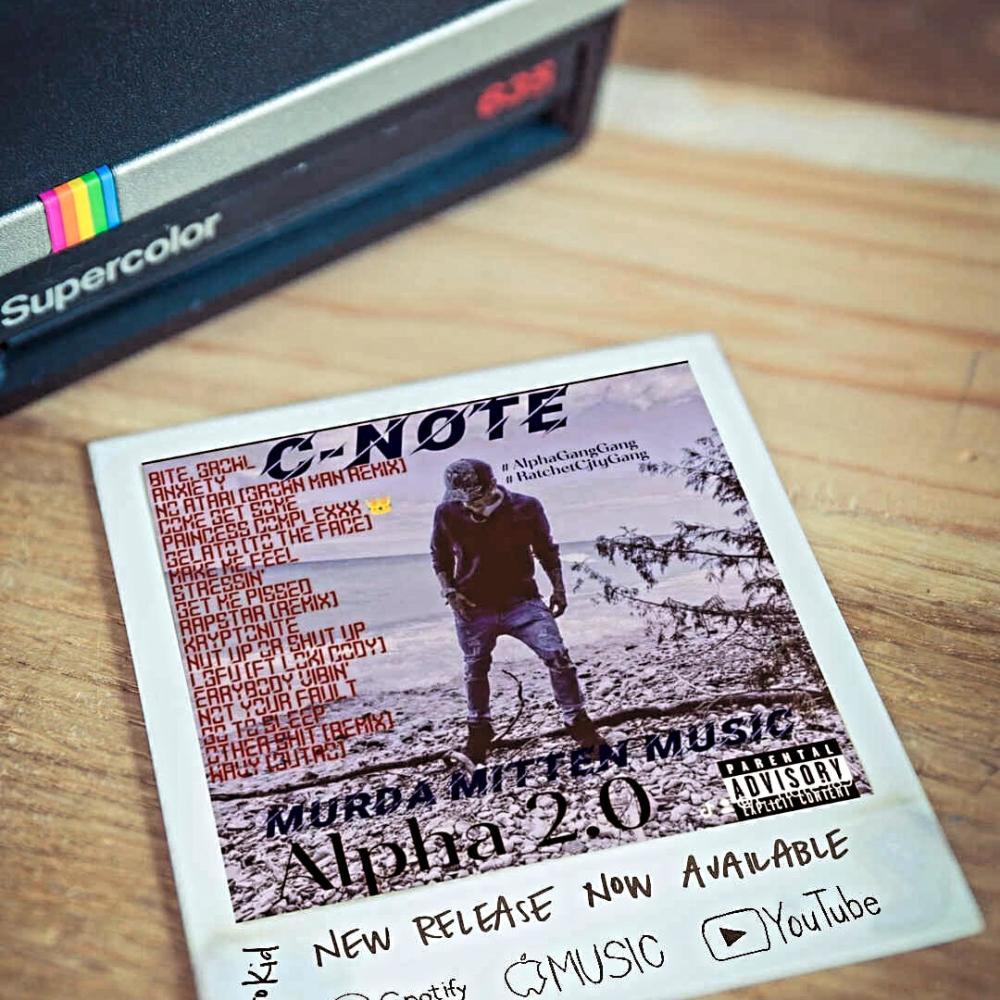 635
Supercolor
C-NOTE
# AlphaGangGang
# RatchetCityGang
BITE, GROWL
ANXIETY
NO ATARI [GROWN MAN REMIX]
COME GET SOME
PRINCESS COMPLEXXX 👑
GELATO [TO THE FACE]
MAKE ME FEEL
STRESSIN'
GET ME PISSED
RAPSTAR [REMIX]
KRYPTONITE
NUT UP OR SHUT UP
I GFU [FT LOKI CODY]
ERRYBODY VIBIN'
NOT YOUR FAULT
GO TO SLEEP
OTHER SHIT [REMIX]
[OUTRO]
MURDA MITTEN MUSIC
Alpha 2.0
PARENTAL
ADVISORY
EXPLICIT CONTENT
NEW RELEASE NOW AVAILABLE
Spotify
MUSIC
YouTube
Kid